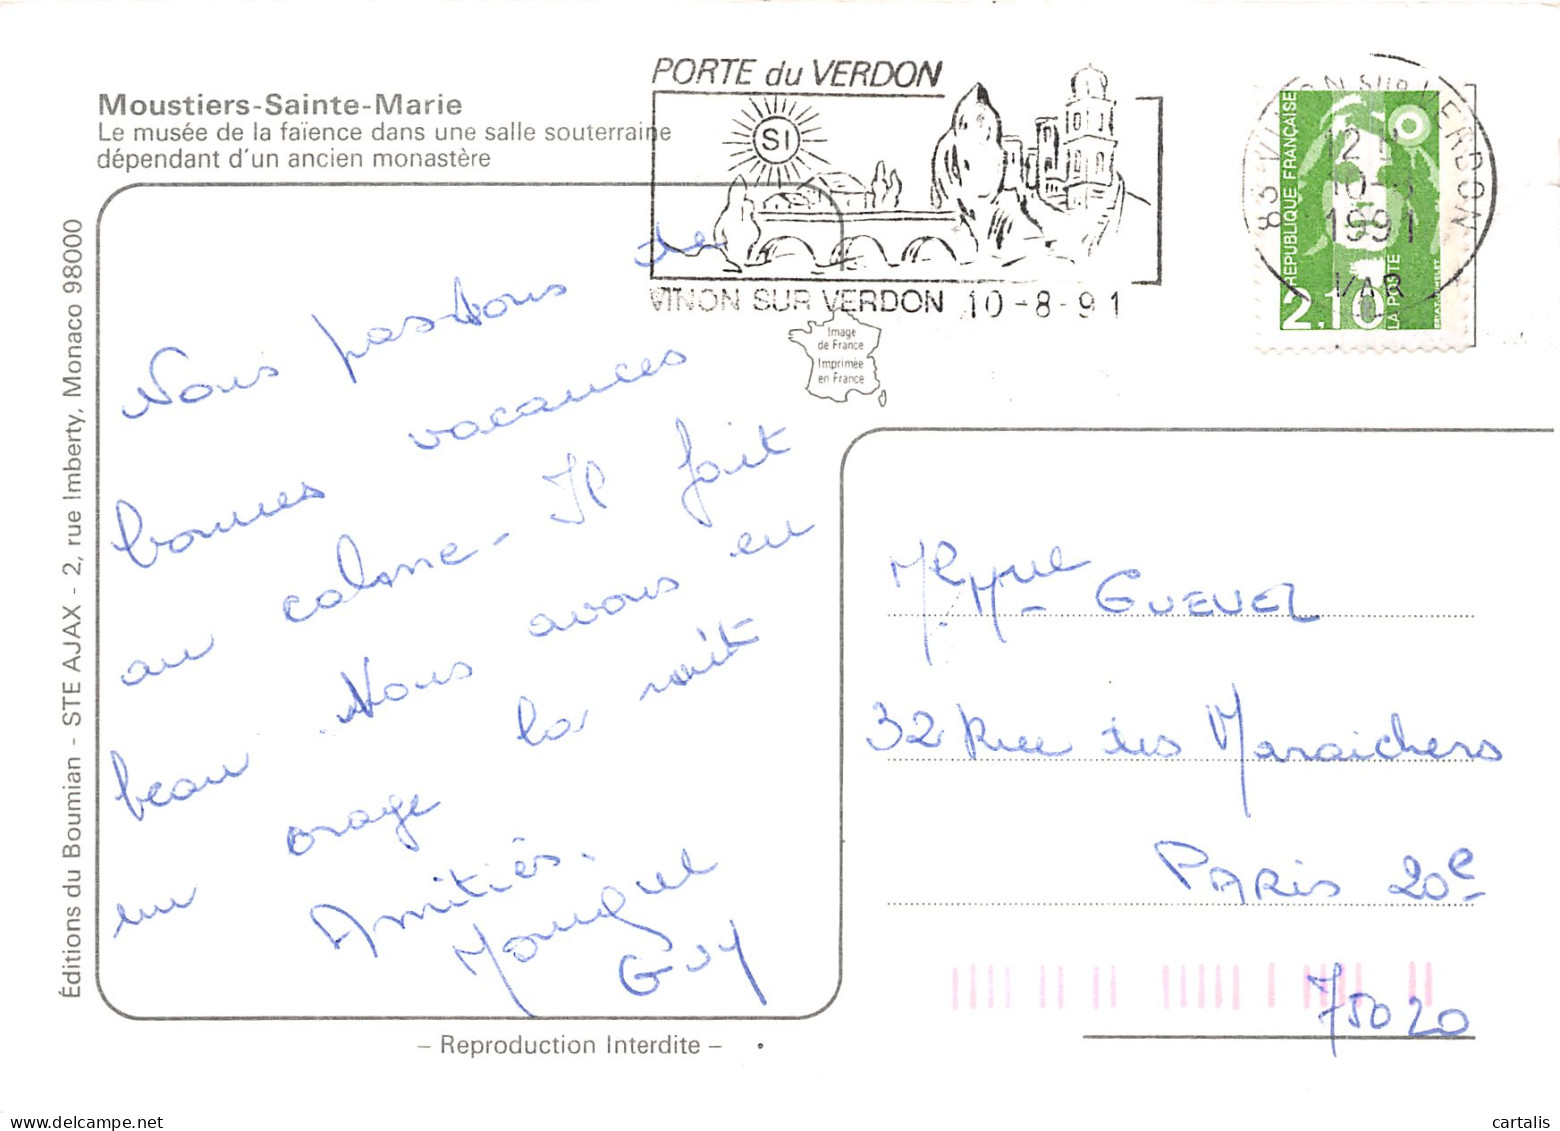 PORTE du VERDON
SI
VINON SUR VERDON 10-8-91
83 VINON SUR VERDON
12 H
10-8
1991
VAR
RÉPUBLIQUE FRANÇAISE
2,10
LA POSTE
Moustiers-Sainte-Marie
Le musée de la faïence dans une salle souterraine
dépendant d'un ancien monastère
Image
de France
Imprimée
en France
Éditions du Boumian - STE AJAX - 2, rue Imberty, Monaco 98000
Nous passons de
bonnes vacances
au calme - Il fait
beau. Nous avons eu
un orage la nuit
Amitiés.
Monique
Guy
Mme GUEUEL
32 Rue des Maraichers
PARIS 20e
75020
– Reproduction Interdite –
cartalis